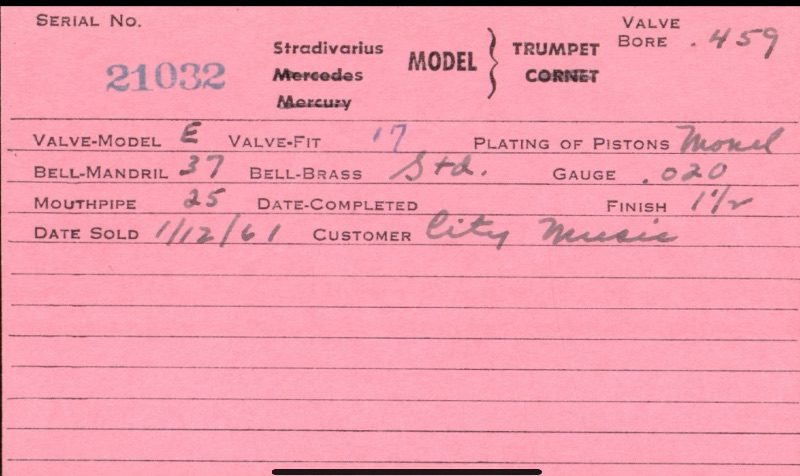 SERIAL NO. 21032 Stradivarius MODEL } TRUMPET VALVE BORE .459
Mercedes CORNET
Mercury
VALVE-MODEL E VALVE-FIT 17 PLATING OF PISTONS Monel
BELL-MANDRIL 37 BELL-BRASS Std. GAUGE .020
MOUTHPIPE 25 DATE-COMPLETED FINISH 1 1/2
DATE SOLD 1/12/61 CUSTOMER City Music